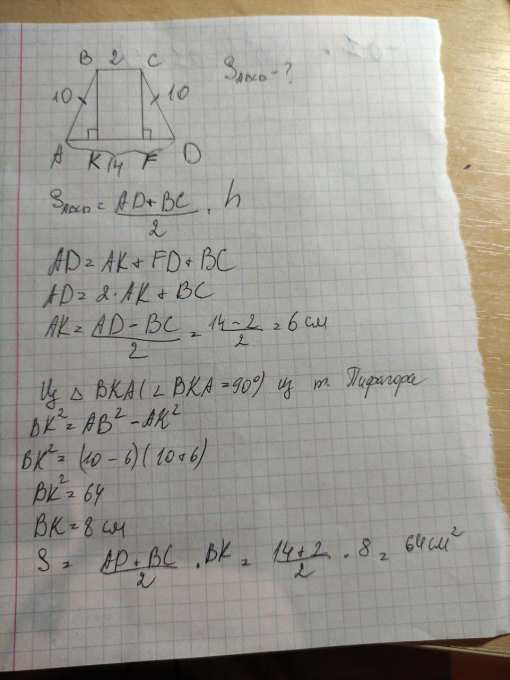 B 2 C
S_ABCD - ?
10 10
A K 14 F D
S_ABCD = (AD + BC)/2 · h
AD = AK + FD + BC
AD = 2 · AK + BC
AK = (AD - BC)/2 = (14 - 2)/2 = 6 см
Из △ BKA (∠ BKA = 90°) из т. Пифагора
BK² = AB² - AK²
BK² = (10 - 6)(10 + 6)
BK² = 64
BK = 8 см
S = (AD + BC)/2 · BK = (14 + 2)/2 · 8 = 64 см²